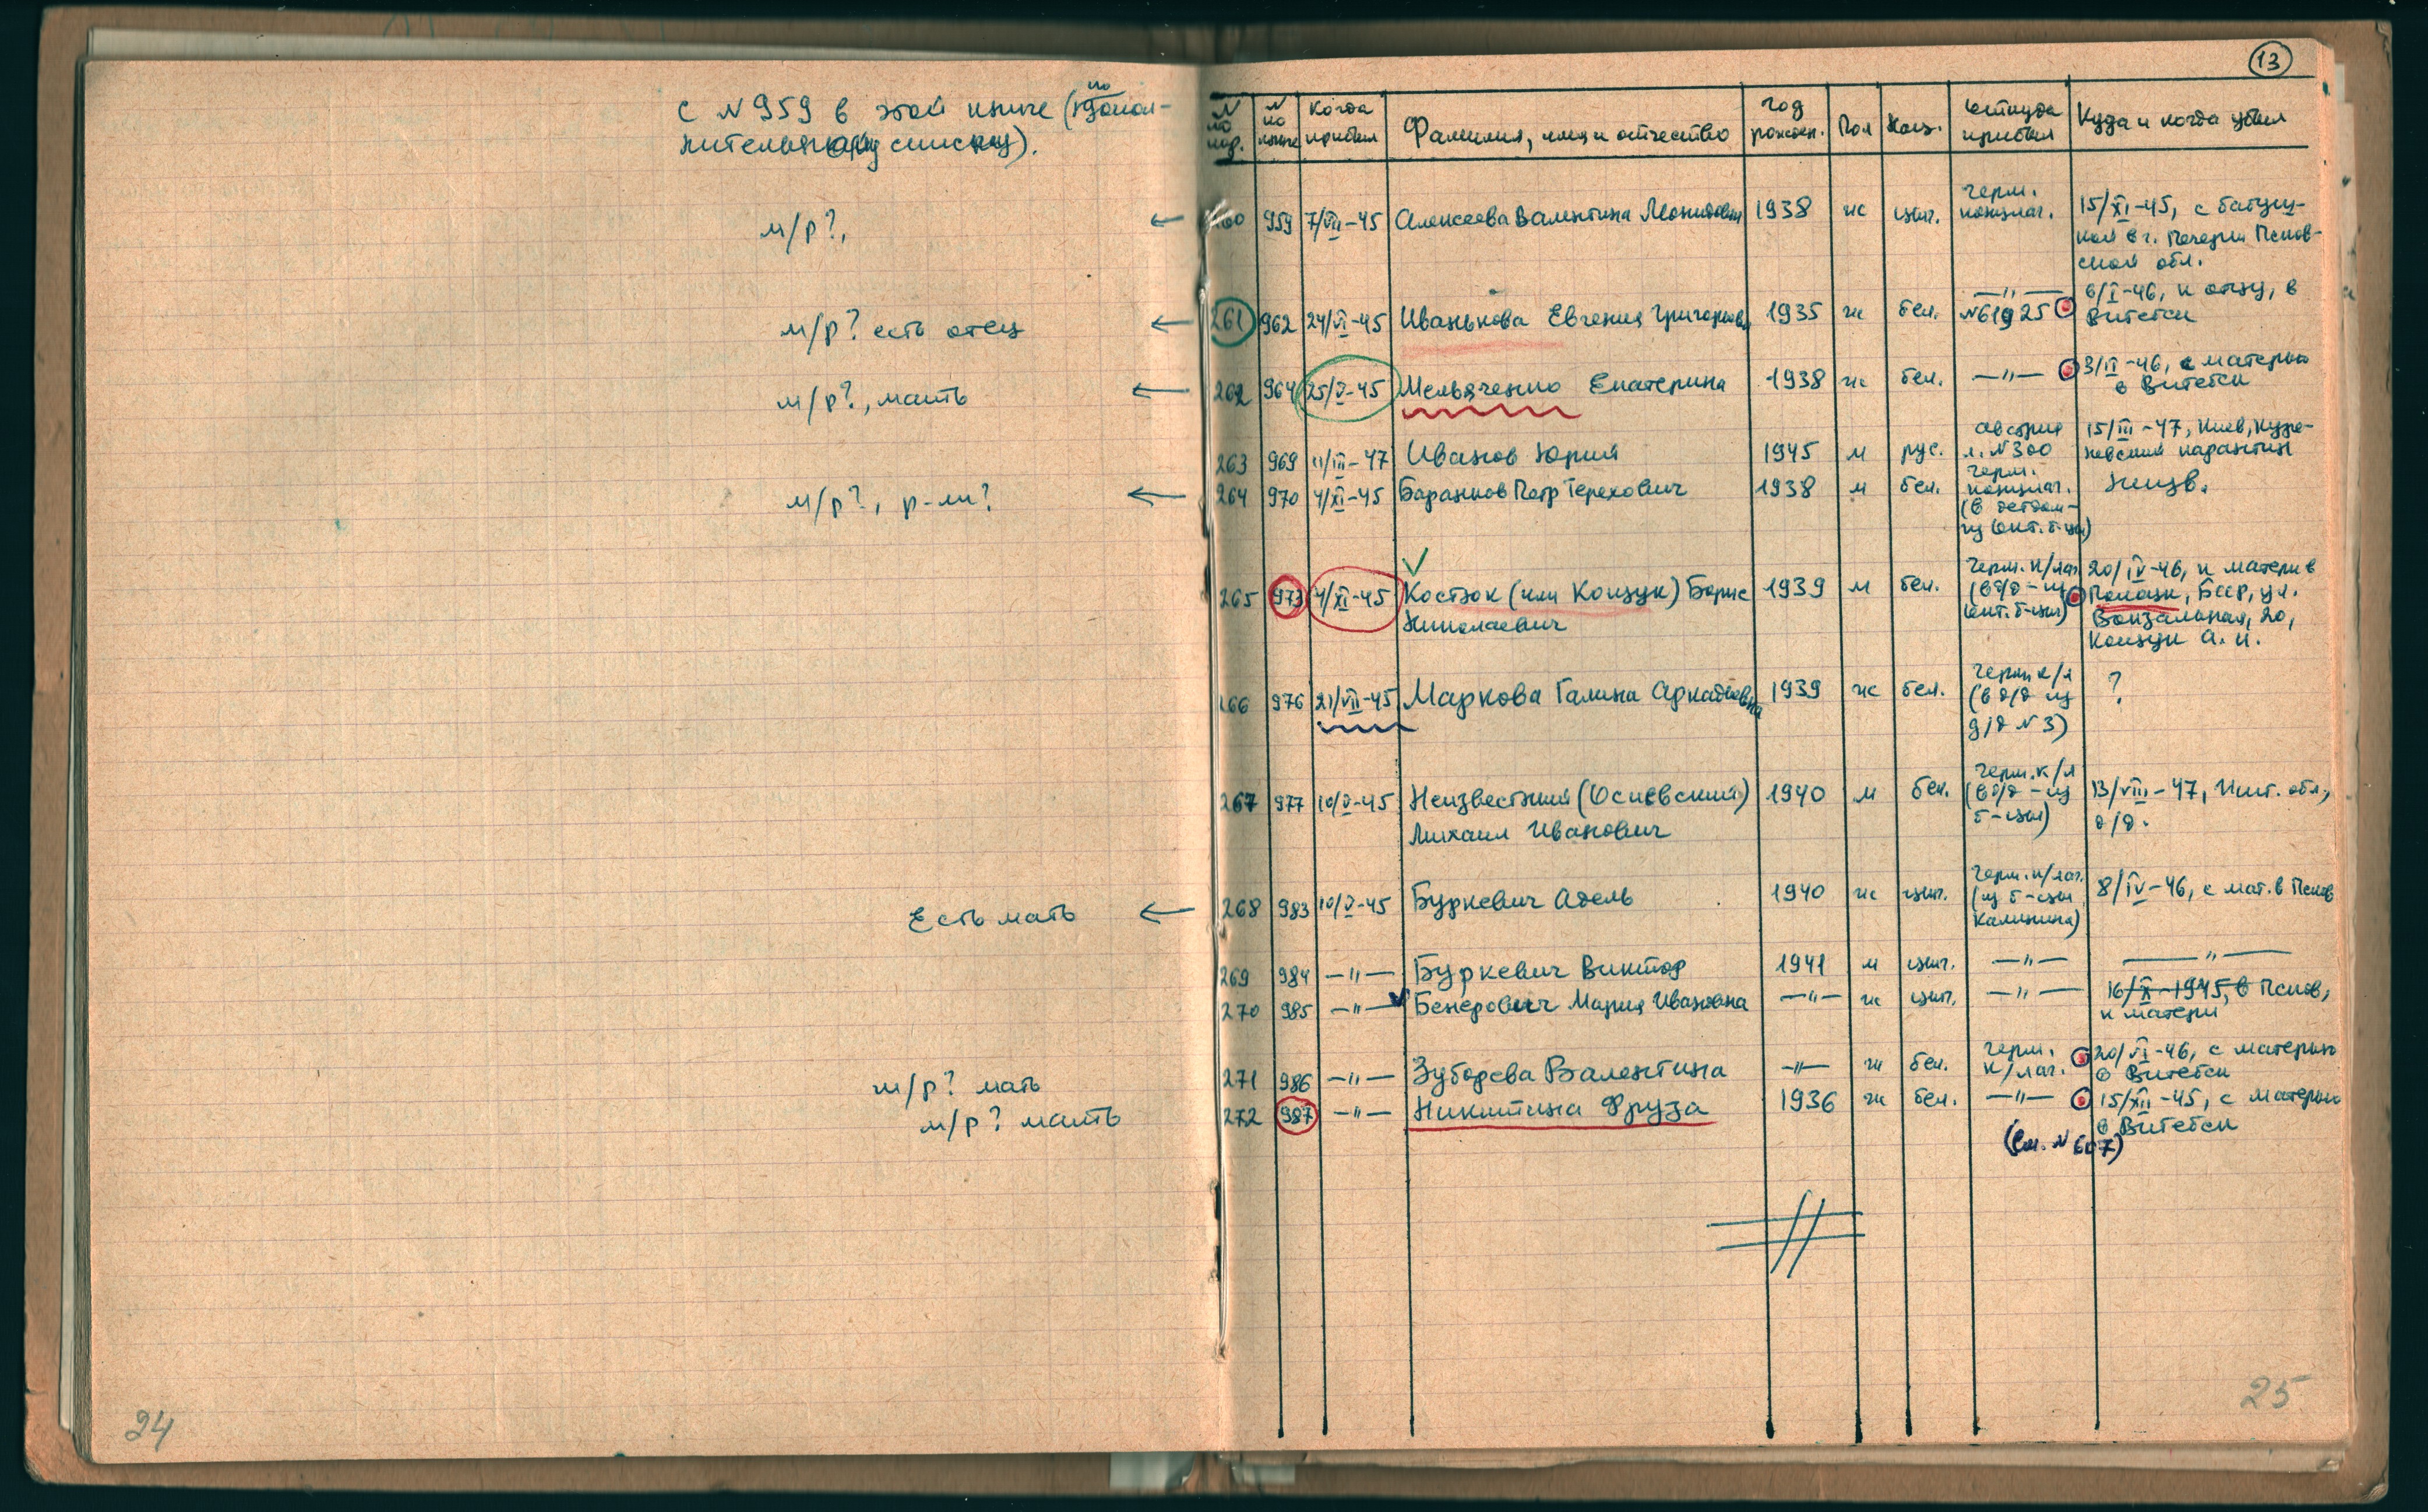 с №959 в этой книге (по допол-
нительному списку).
м/р?,
м/р? есть отец
м/р?, мать
м/р?, р-ли?
Есть мать
м/р? мать
м/р? мать
24
13
N по пор. N по книге Когда прибыл Фамилия, имя и отчество Год рожден. Пол Нац. Откуда прибыл Куда и когда убыл
260 959 7/VII-45 Алексеева Валентина Леонидовн 1938 ж цыг. Герм. концлаг. 15/XI-45, с бабуш-
кой в г. Печеры Псков-
ской обл.
261 962 24/VI-45 Иванькова Евгения Григорьевн 1935 ж бел. —"— №61925 6/I-46, к отцу, в
Витебск
262 964 25/V-45 Мельяченко Екатерина 1938 ж бел. —"— 3/II-46, с матерью
в Витебск
263 969 11/III-47 Иванов Юрий 1945 м рус. Австрия л. №300 15/III-47, Киев, Куре-
невский карантин
264 970 4/XI-45 Баранков Петр Терехович 1938 м бел. Герм. концлаг. неизв.
(в детдом-
из Окт. б-цы)
265 973 4/XI-45 Костюк (или Кошук) Борис 1939 м бел. Герм. к/лаг. 20/IV-46, к матери в
Николаевич (в д/д - из Окт. б-цы) Полоцк, БССР, ул.
Вокзальная, 20,
Кошук А. И.
266 976 21/VII-45 Маркова Галина Аркадьевна 1939 ж бел. Герм к/л ?
(в д/д из
д/д №3)
267 977 10/V-45 Неизвестный (Осиевский) 1940 м бел. Герм. к/л 13/VIII-47, Жит. обл,
Михаил Иванович (в д/д - из б-цы) д/д.
268 983 10/V-45 Буркевич Адель 1940 ж цыг. Герм. к/лаг. 8/IV-46, с мат. в Псков
(из б-цы
Калинина)
269 984 —"— Буркевич Виктор 1941 м цыг. —"— —"—
270 985 —"— Бенерович Мария Ивановна —"— ж цыг. —"— 16/X-1945, в Псков,
к матери
271 986 —"— Зуборева Валентина —"— ж бел. Герм. к/лаг. 20/VI-46, с матерью
в Витебск
272 987 —"— Никитина Фруза 1936 ж бел. —"— 15/XII-45, с матерью
в Витебск
(См. №607)
25